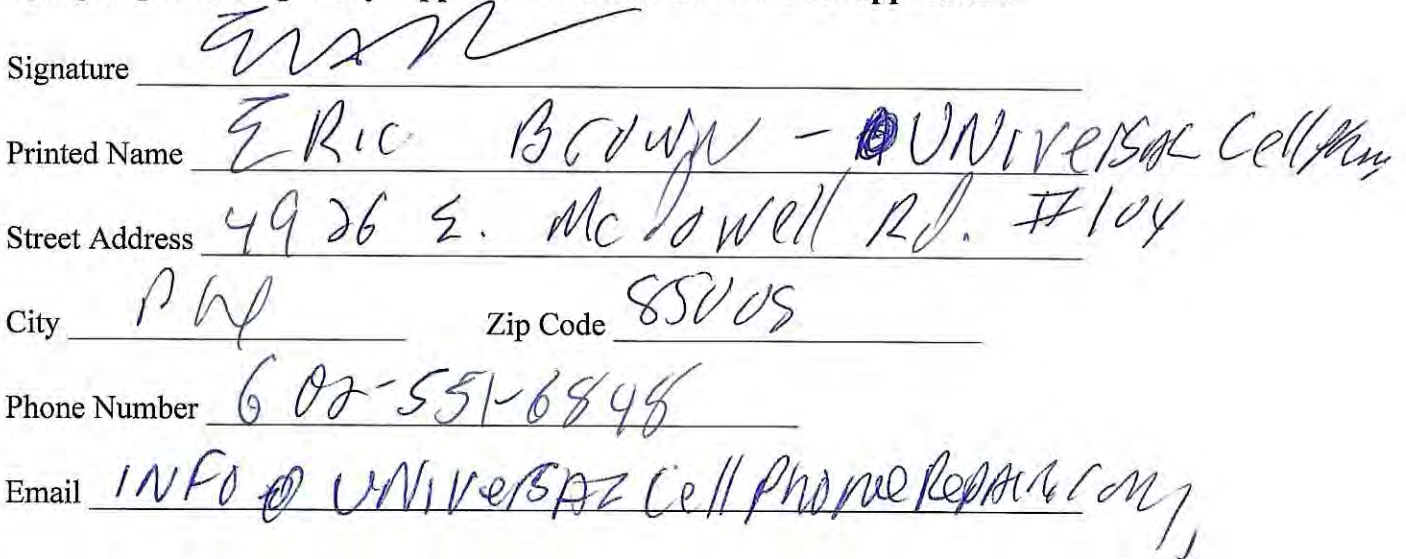 Signature
Printed Name ERic Brown - UNiveRSAL Cellphone
Street Address 4926 E. McDowell Rd. #104
City PHX Zip Code 85008
Phone Number 602-551-6848
Email INFO@UNiveRSALCellPhoneRepair.com